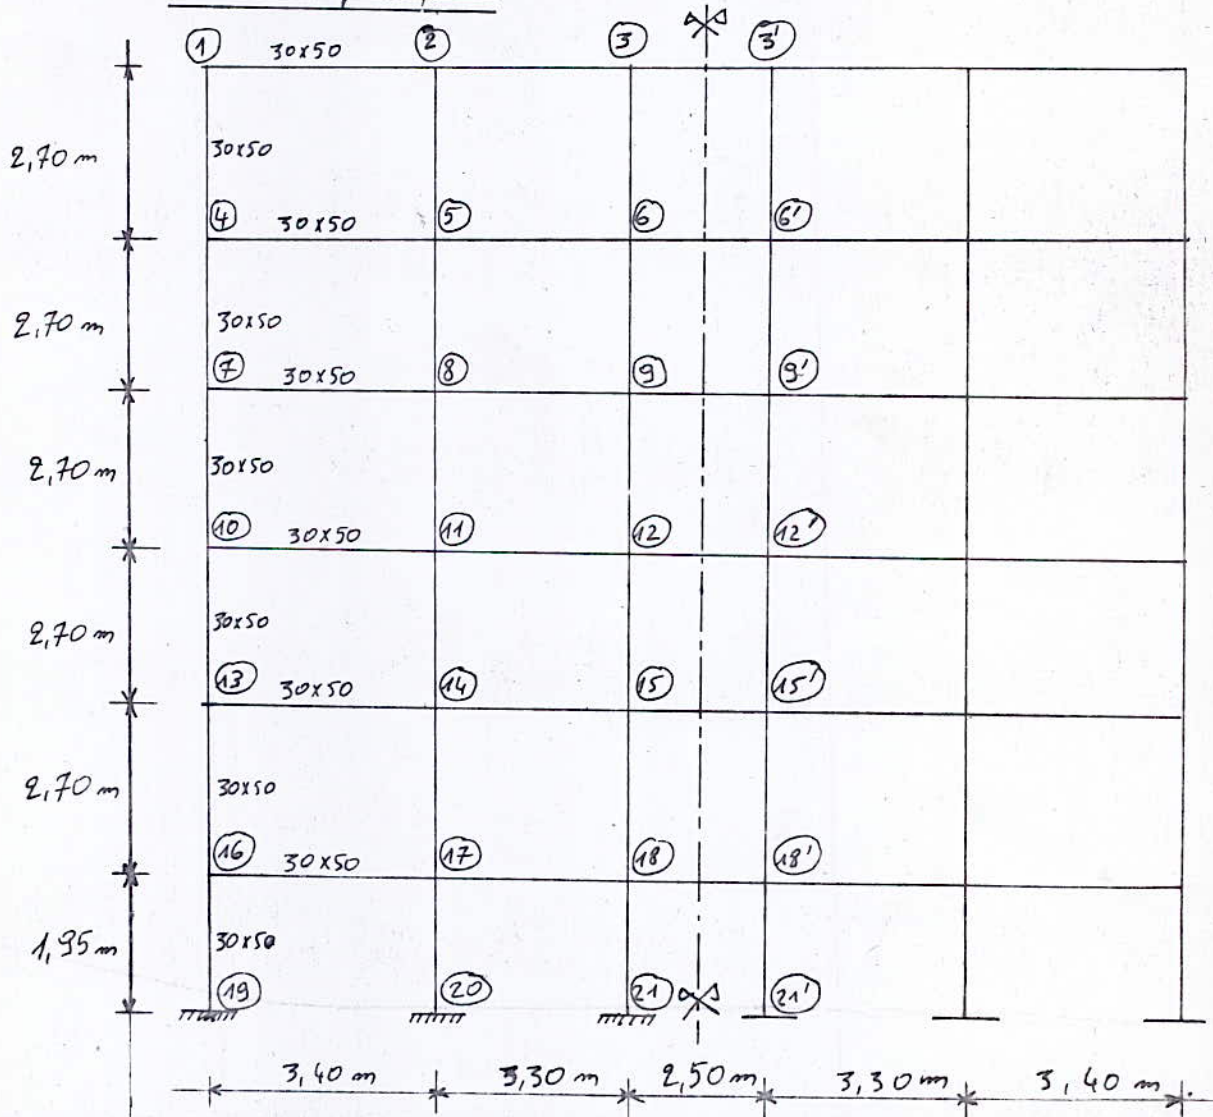 1 2 3 3'
30x50
2,70 m
30x50
4 30x50 5 6 6'
2,70 m
30x50
7 30x50 8 9 9'
2,70 m
30x50
10 30x50 11 12 12'
2,70 m
30x50
13 30x50 14 15 15'
2,70 m
30x50
16 30x50 17 18 18'
1,95 m
30x50
19 20 21 21'
3,40 m 3,30 m 2,50 m 3,30 m 3,40 m